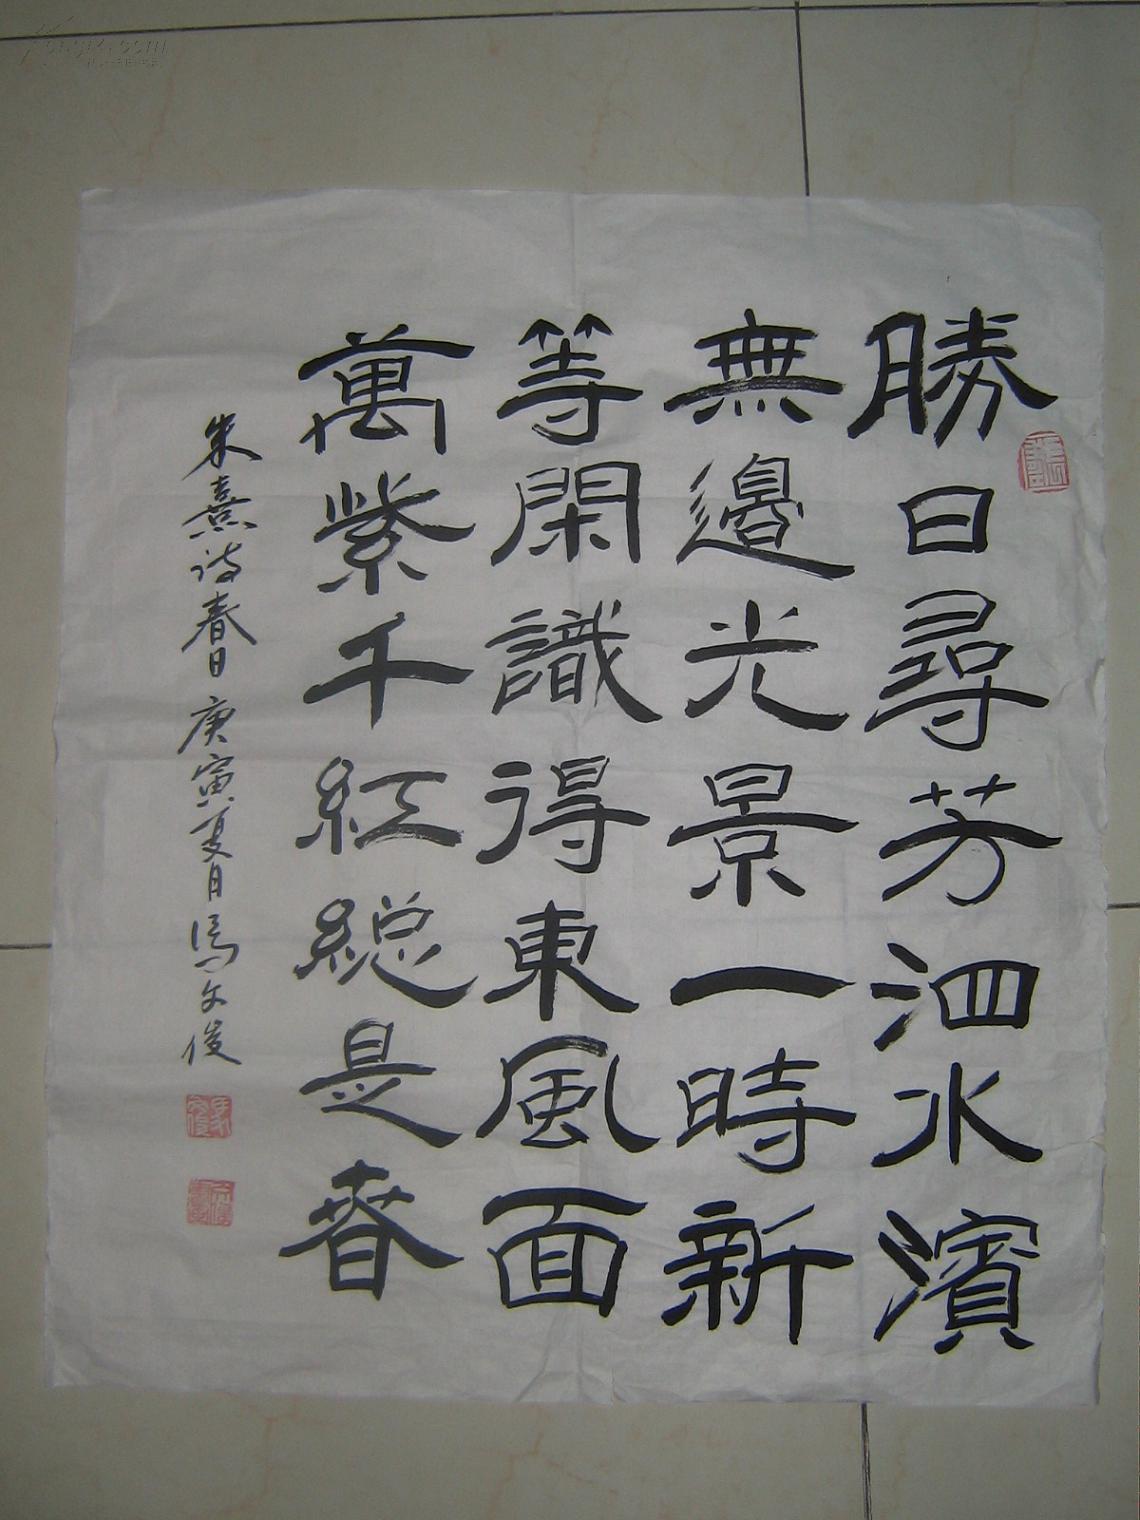 勝日尋芳泗水濱
無邊光景一時新
等閑識得東風面
萬紫千紅總是春
朱熹诗春日 庚寅夏月馮文俊